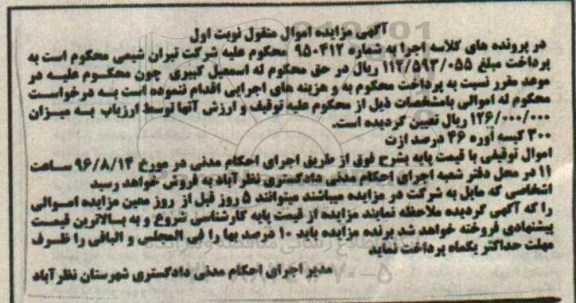 آگهی مزایده اموال منقول نوبت اول
در پرونده های کلاسه اجرا به شماره ۹۵۰۴۱۲ محکوم علیه شرکت تیران شیمی محکوم است به
پرداخت مبلغ ۱۱۲/۵۹۳/۰۵۵ ریال در حق محکوم له اسمعیل کبیری چون محکوم علیه در
موعد مقرر نسبت به پرداخت محکوم به و هزینه های اجرایی اقدام ننموده است به درخواست
محکوم له اموالی بامشخصات ذیل از محکوم علیه توقیف و ارزش آنها توسط ارزیاب به میزان
۱۲۶/۰۰۰/۰۰۰ ریال تعیین گردیده است.
۳۰۰ کیسه آوره ۴۶ درصد ازت
اموال توقیفی با قیمت پایه بشرح فوق از طریق اجرای احکام مدنی در مورخ ۹۶/۸/۱۴ ساعت
۱۱ در محل دفتر شعبه اجرای احکام مدنی دادگستری نظرآباد به فروش خواهد رسید
اشخاصی که مایل به شرکت در مزایده میباشند میتوانند ۵ روز قبل از روز معین مزایده اموالی
را که آگهی گردیده ملاحظه نمایند مزایده از قیمت پایه کارشناسی شروع و به بالاترین قیمت
پیشنهادی فروخته خواهد شد برنده مزایده باید ۱۰ درصد بها را فی المجلس و الباقی را ظرف
مهلت حداکثر یکماه پرداخت نماید
مدیر اجرای احکام مدنی دادگستری شهرستان نظرآباد